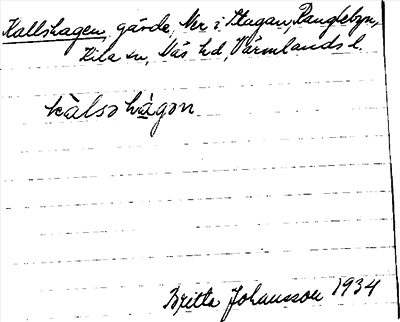 Kallshagen, gärde, Ner i Stugan, Ranglebyn,
Kila sn, Näs hd, Värmlands l.
kàlsəhàgən
Britta Johansson 1934